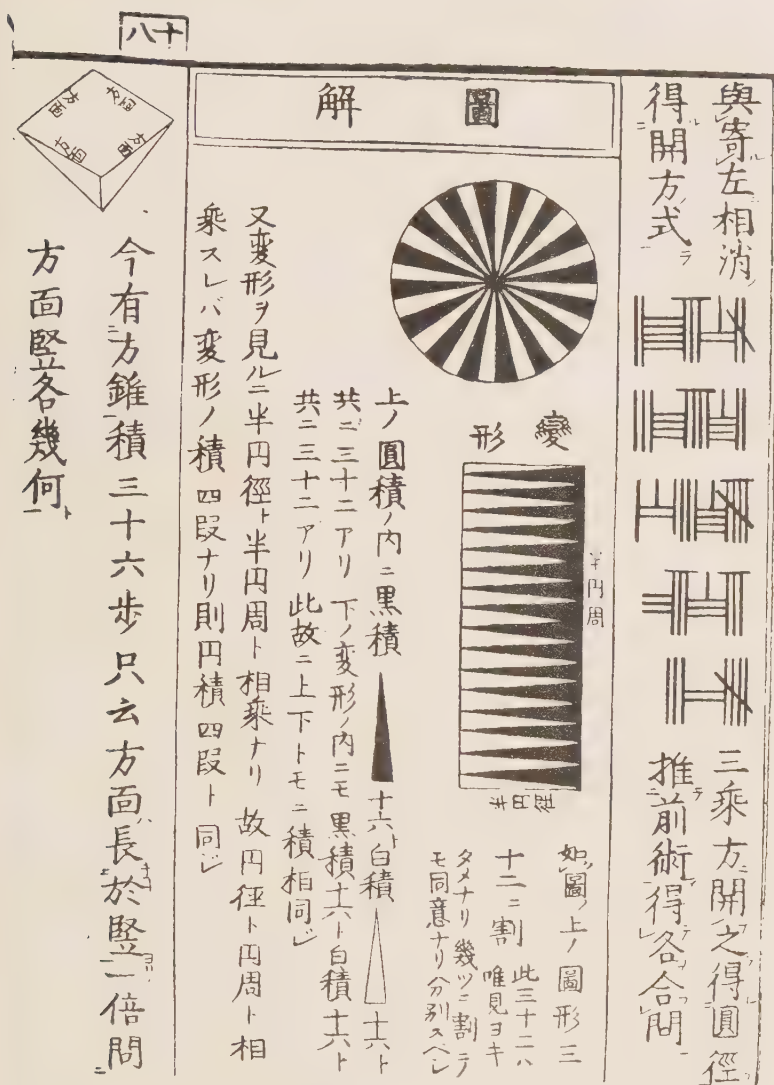 十八
與寄左相消
得開方式
三乘方開之得圓徑
推前術得各合問
圖解
變形
半円周
半円徑
如圖上ノ圖形三
十二ニ割 此三十二ハ
唯見ヨキ
タメナリ幾ツニ割テ
モ同意ナリ分別スベシ
上ノ圓積ノ内ニ黒積 十六ト白積 十六ト
共ニ三十二アリ 下ノ変形ノ内ニモ黒積十六ト白積十六ト
共ニ三十二アリ 此故ニ上下トモニ積相同シ
又変形ヲ見ルニ半円徑ト半円周ト相乘ナリ 故円徑ト円周ト相
乘スレバ変形ノ積四段ナリ則円積四段ト同シ
方面 方面 方面 方面
今有方錐積三十六歩只云方面長於竪一倍問
方面竪各幾何